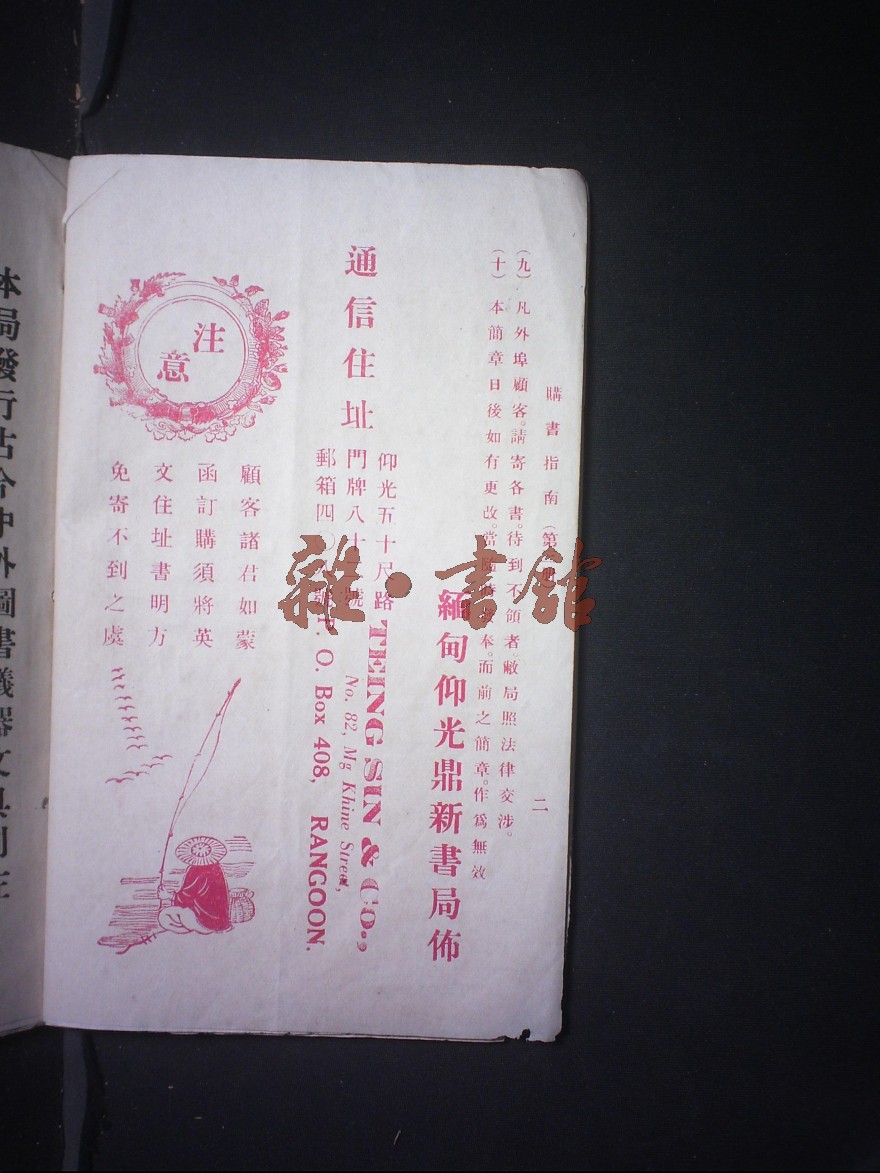 購書指南（第 二
（九）凡外埠顧客。請寄各書。待到不領者。敝局照法律交涉。
（十）本簡章日後如有更改。當隨 奉。而前之簡章。作爲無效
緬甸仰光鼎新書局佈
通信住址
仰光五十尺路
門牌八十 號
郵箱四〇 號
TEING SIN & CO.,
No. 82, Mg Khine Street,
P. O. Box 408, RANGOON.
注意
顧客諸君如蒙
函訂購須將英
文住址書明方
免寄不到之虞
本局發行古今中外圖書儀器文具
雜·書館